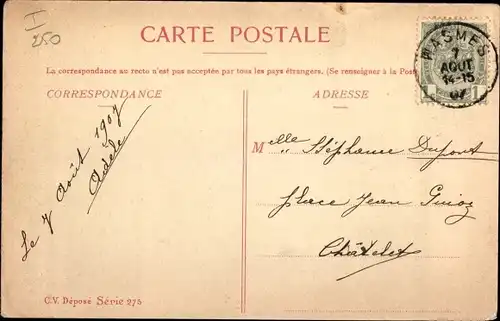 I
250
CARTE POSTALE
WASMES
7
AOUT
14-15
07
La correspondance au recto n'est pas acceptée par tous les pays étrangers. (Se renseigner à la Post
CORRESPONDANCE
ADRESSE
Le 7 Août 1907
Adèle
Melle Stéphanie Dupont
place Jean Guioz
Châtelet
C.V. Déposé Série 275